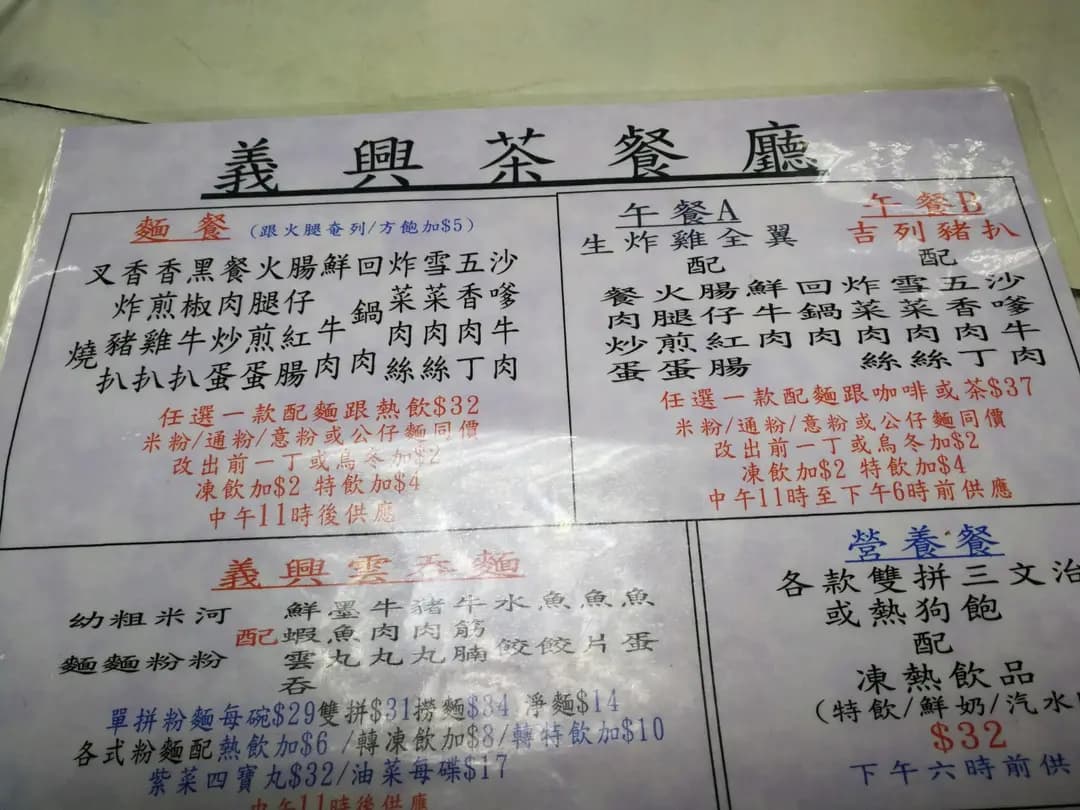 義興茶餐廳
麵餐 (跟火腿奄列/方飽加$5)
叉燒
香炸豬扒
香煎雞扒
黑椒牛扒
餐肉炒蛋
火腿煎蛋
腸仔紅腸
鮮牛肉
回鍋肉
炸菜肉絲
雪菜肉絲
五香肉丁
沙嗲牛肉
任選一款配麵跟熱飲$32
米粉/通粉/意粉或公仔麵同價
改出前一丁或烏冬加$2
凍飲加$2 特飲加$4
中午11時後供應
午餐A
生炸雞全翼
配
午餐B
吉列豬扒
配
餐肉炒蛋
火腿煎蛋
腸仔紅腸
鮮牛肉
回鍋肉
炸菜肉絲
雪菜肉絲
五香肉丁
沙嗲牛肉
任選一款配麵跟咖啡或茶$37
米粉/通粉/意粉或公仔麵同價
改出前一丁或烏冬加$2
凍飲加$2 特飲加$4
中午11時至下午6時前供應
義興雲吞麵
幼麵
粗麵
米粉
河粉
配
鮮蝦雲吞
墨魚丸
牛肉丸
豬肉丸
牛筋腩
水餃
魚餃
魚片
魚蛋
單拼粉麵每碗$29雙拼$31撈麵$34 淨麵$14
各式粉麵配熱飲加$6 /轉凍飲加$8/轉特飲加$10
紫菜四寶丸$32/油菜每碟$17
中午11時後供應
營養餐
各款雙拼三文治
或熱狗飽
配
凍熱飲品
(特飲/鮮奶/汽水
$32
下午六時前供